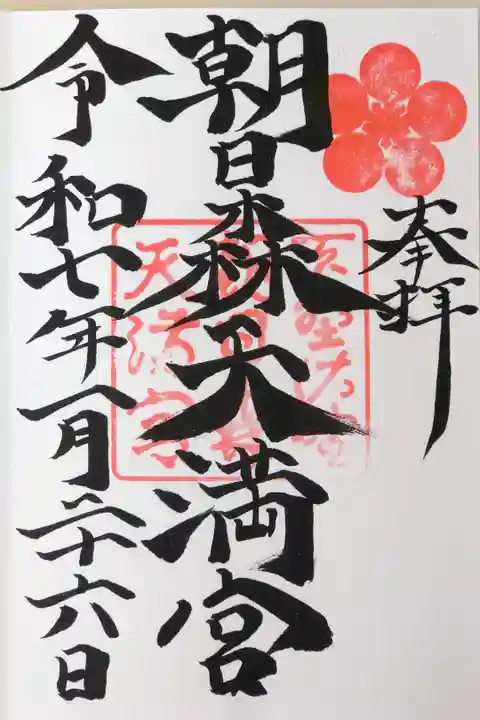 奉拝
朝日森天満宮
令和七年一月二十六日
天満宮